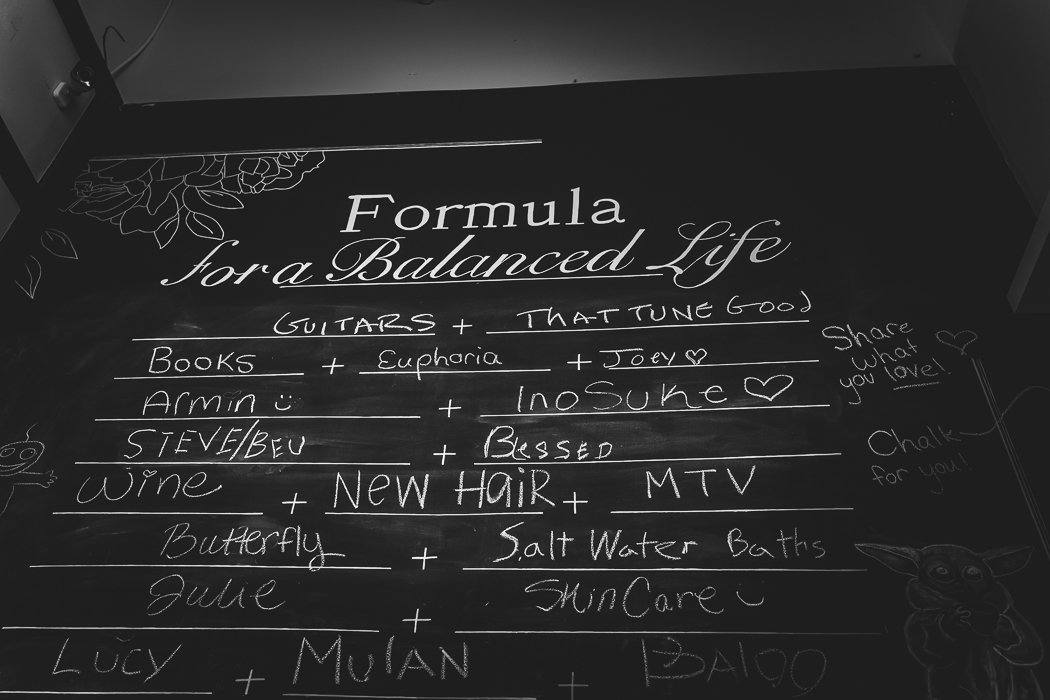 Formula
for a Balanced Life
GUITARS + THAT TUNE GOOD
BOOKS + Euphoria + Joey ♡
Armin ü + InoSuke ♡
STEVE/BEV + BLESSED
Wine + NEW HAIR + MTV
Butterfly + Salt Water Baths
Julie + SkinCare
LUCY + MULAN + BALOO
Share
what
you love!
Chalk
for you!